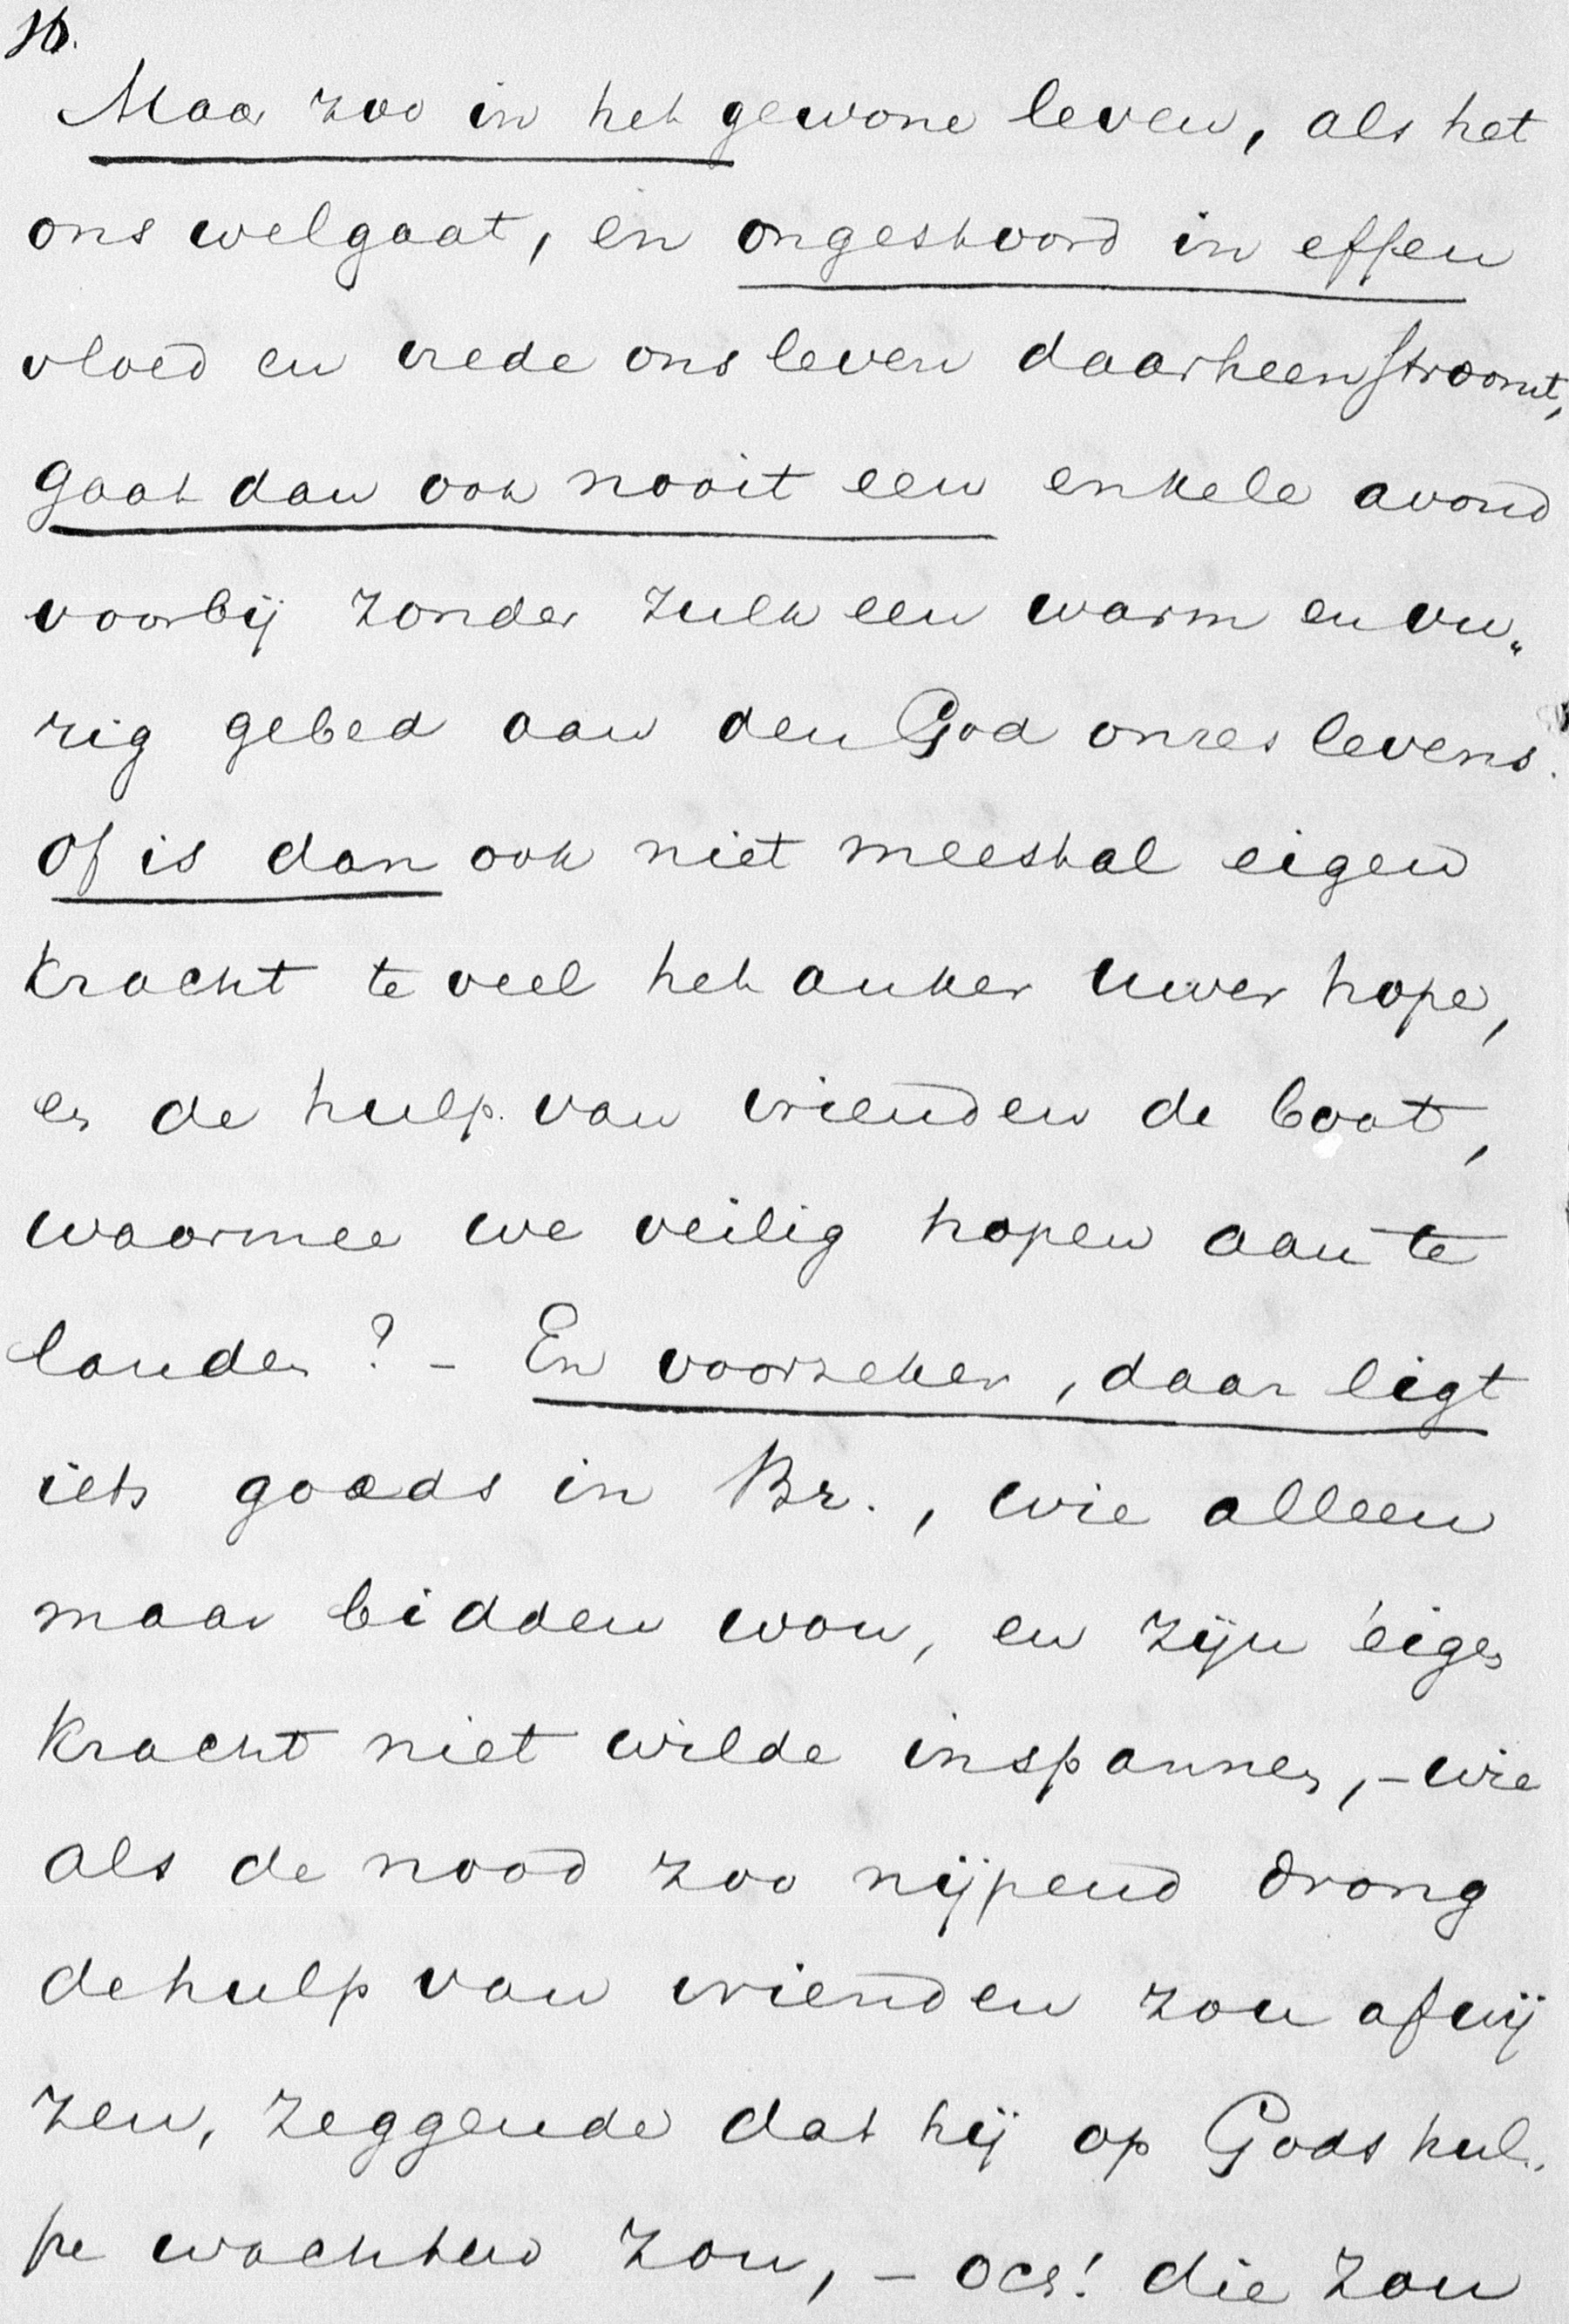 16.
Maar zoo in het gewone leven, als het
ons welgaat, en ongestoord in effen
vloed en vrede ons leven daarheen stroomt,
gaat dan ook nooit een enkele avond
voorbij zonder zulk een warm en vu„
rig gebed aan den God onzes levens.
Of is dan ook niet meestal eigen
kracht te veel het anker uwer hope,
en de hulp van vrienden de boot,
waarmee we veilig hopen aan te
landen? – En voorzeker, daar ligt
iets goeds in Br., wie alleen
maar bidden wou, en zijn eigen
kracht niet wilde inspannen, – wie
als de nood zoo nijpend drong
de hulp van vrienden zou afwij
zen, zeggende dat hij op Gods hul„
pe wachten zou, – och! die zou